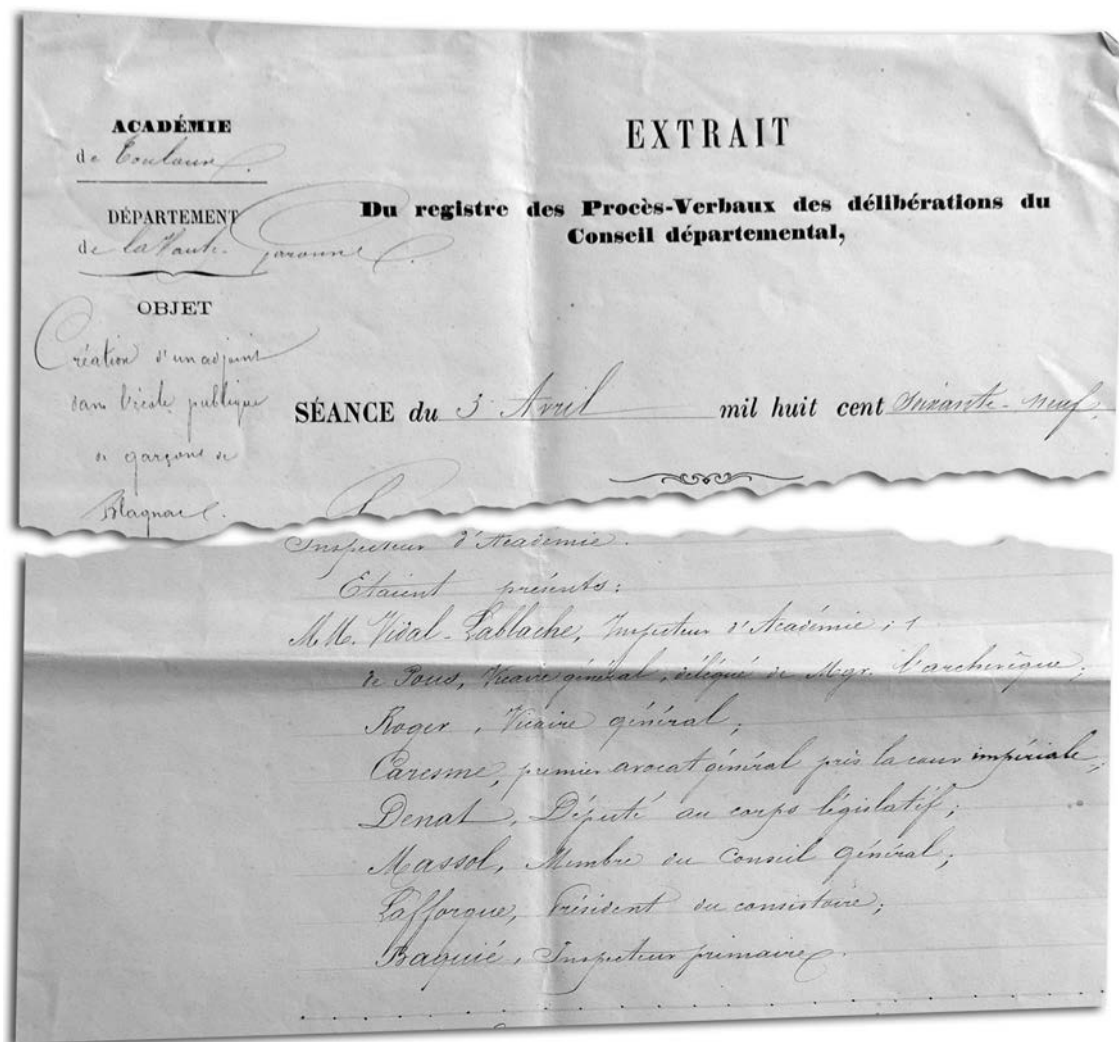 ACADÉMIE
de Toulouse.
DÉPARTEMENT
de la Haute-Garonne.
OBJET
Création d'un adjoint
dans l'école publique
de garçons de
Blagnac.
EXTRAIT
Du registre des Procès-Verbaux des délibérations du
Conseil départemental,
SÉANCE du 3 Avril mil huit cent soixante-neuf.
Inspecteur d'Académie.
Etaient présents:
MM. Vidal-Lablache, Inspecteur d'Académie;
de Pous, Vicaire général, délégué de Mgr. l'archevêque;
Roger, Vicaire général;
Caresme, premier avocat général près la cour impériale;
Denat, Député au corps législatif;
Massol, Membre du Conseil général;
Lafforgue, Président du consistoire;
Baquié, Inspecteur primaire